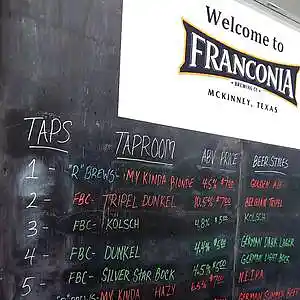 Welcome to
FRANCONIA
BREWING CO.
MCKINNEY, TEXAS
TAPS TAPROOM ABV PRICE BEER STYLES
1 - "R" BREWS- MY KINDA BLONDE 4.6% $7.00 GOLDEN ALE
2 - FBC- TRIPEL DUNKEL 10.5% $7.00 BELGIAN TRIPEL
3 - FBC- KOLSCH 4.8% KOLSCH
4 - FBC- DUNKEL GERMAN DARK LAGER
5 FBC- SILVER STAR BOCK GERMAN LIGHT BOCK
MY KINDA HAZY N.E.I.P.A